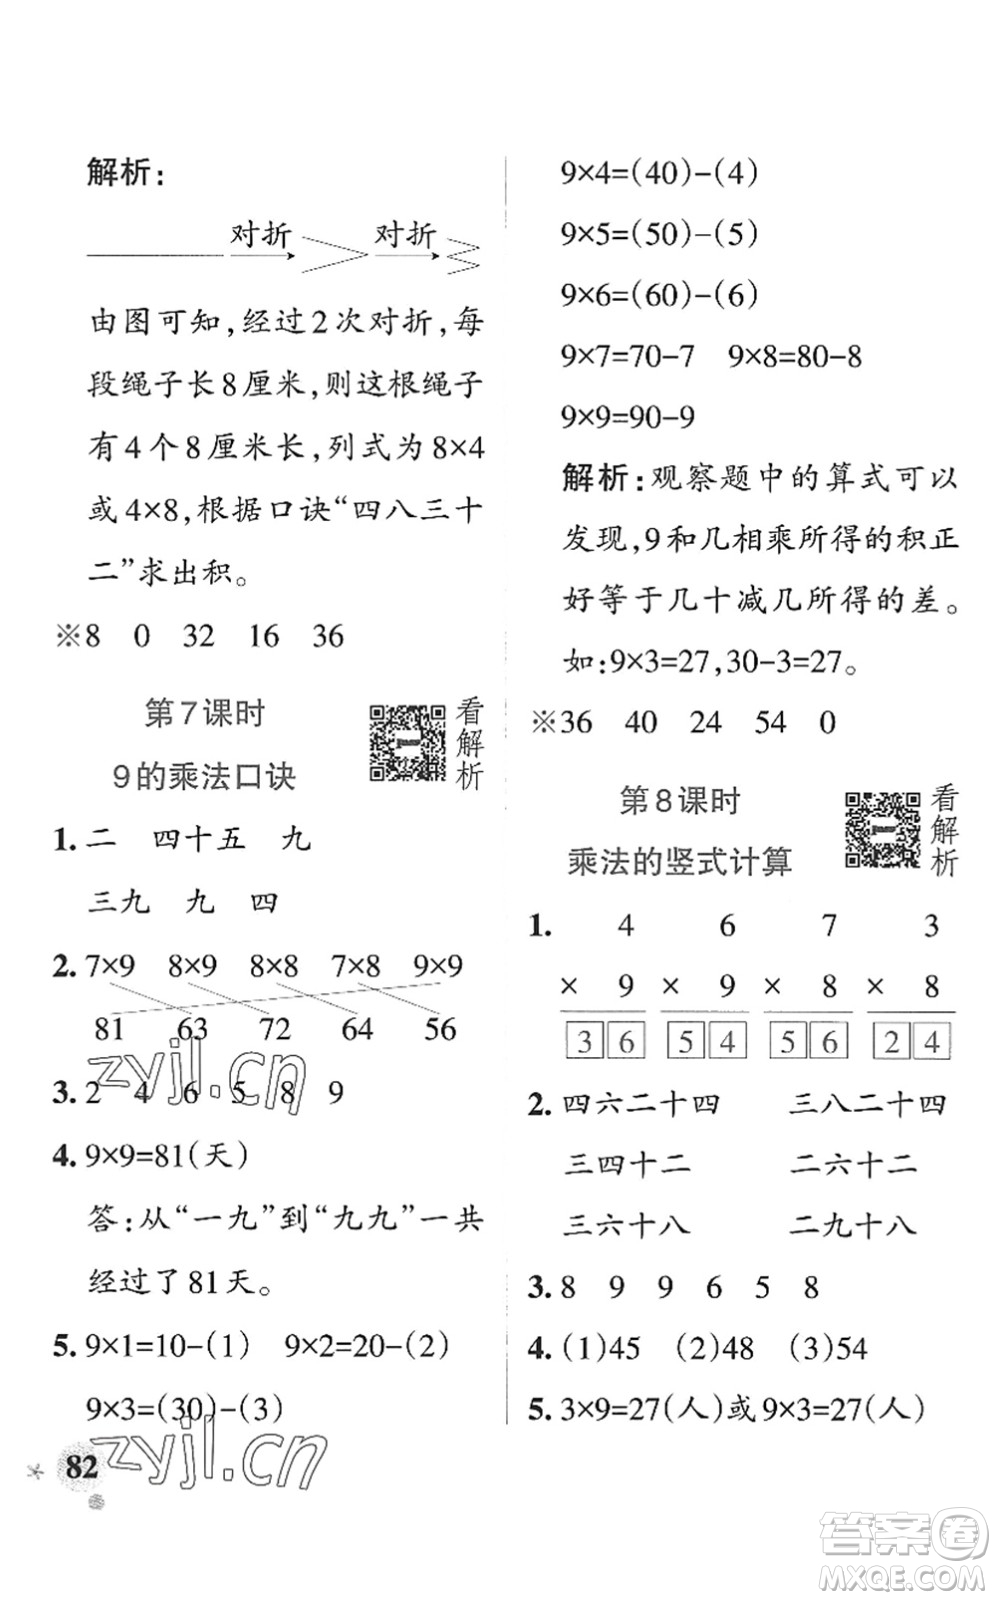 解析：
对折 对折
由图可知，经过2次对折，每
段绳子长8厘米，则这根绳子
有4个8厘米长，列式为8×4
或4×8，根据口诀“四八三十
二”求出积。
※8 0 32 16 36
第7课时
9的乘法口诀
看解析
1. 二 四十五 九
三九 九 四
2. 7×9 8×9 8×8 7×8 9×9
81 63 72 64 56
3. 2 4 6 5 8 9
4. 9×9=81(天)
答：从“一九”到“九九”一共
经过了81天。
5. 9×1=10-(1) 9×2=20-(2)
9×3=(30)-(3)
82
9×4=(40)-(4)
9×5=(50)-(5)
9×6=(60)-(6)
9×7=70-7 9×8=80-8
9×9=90-9
解析：观察题中的算式可以
发现，9和几相乘所得的积正
好等于几十减几所得的差。
如：9×3=27，30-3=27。
※36 40 24 54 0
第8课时
乘法的竖式计算
看解析
1. 4 6 7 3
× 9 × 9 × 8 × 8
3 6 5 4 5 6 2 4
2. 四六二十四 三八二十四
三四十二 二六十二
三六十八 二九十八
3. 8 9 9 6 5 8
4. (1)45 (2)48 (3)54
5. 3×9=27(人)或9×3=27(人)
zyjl.cn
zyjl.cn
答案卷
MXQE.COM